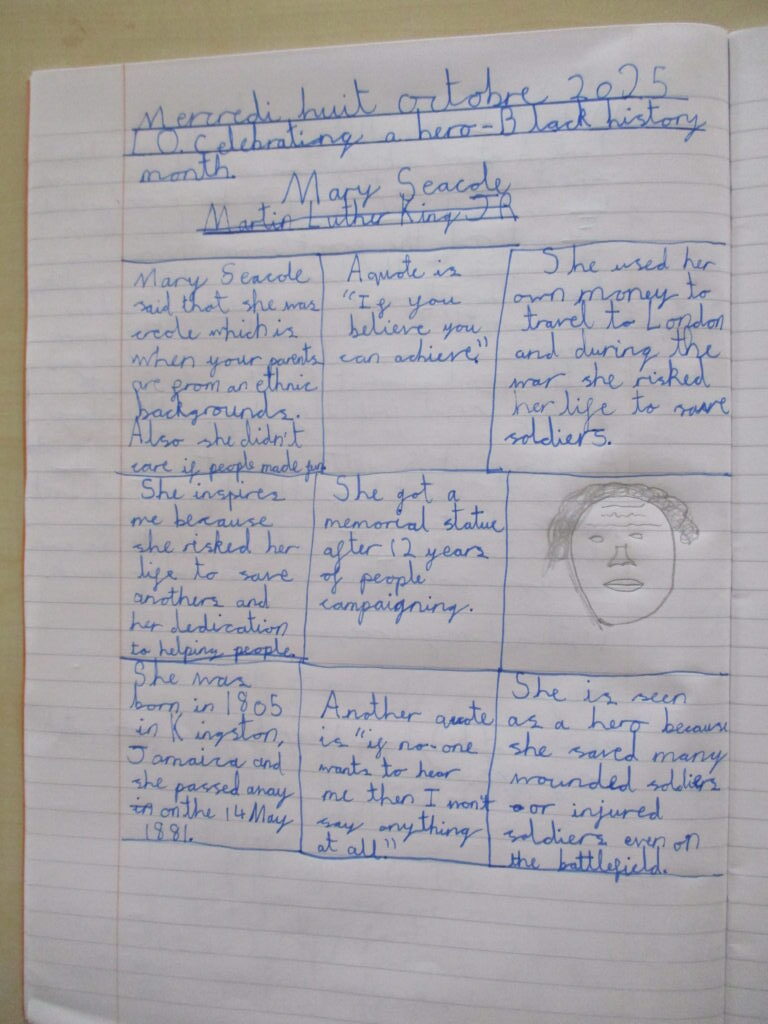 Mercredi huit octobre 2025
LO. Celebrating a hero-Black history
month.
Mary Seacole
Martin Luther King JR
Mary Seacole
said that she was
creole which is
when your parents
are from an ethnic
backgrounds.
Also she didn't
care if people made fun
A quote is
"If you
believe you
can achieve."
She used her
own money to
travel to London
and during the
war she risked
her life to save
soldiers.
She inspires
me because
she risked her
life to save
anothers and
her dedication
to helping people.
She got a
memorial statue
after 12 years
of people
campaigning.
She was
born in 1805
in Kingston,
Jamaica and
she passed away
in on the 14 May
1881.
Another quote
is "if no-one
wants to hear
me then I won't
say anything
at all."
She is seen
as a hero because
she saved many
wounded soldiers
or injured
soldiers even on
the battlefield.